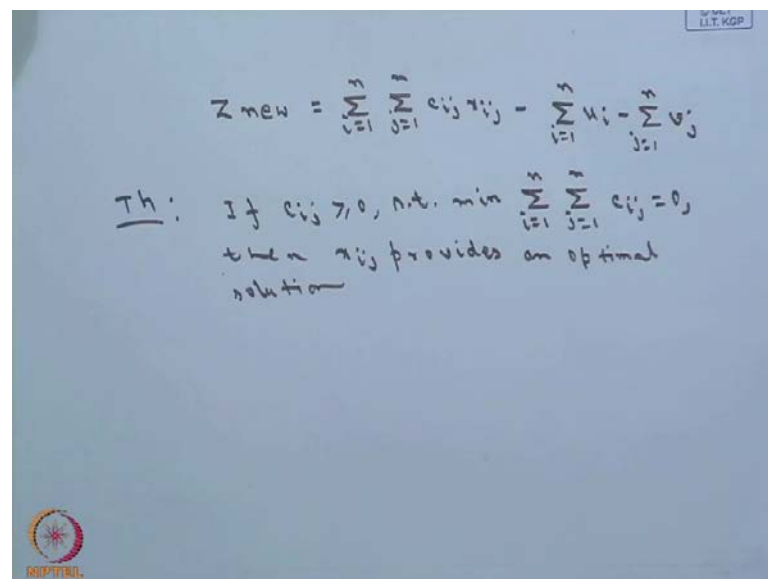 I.I.T. KGP
Z new = \sum_{i=1}^{n} \sum_{j=1}^{n} c_{ij} x_{ij} - \sum_{i=1}^{n} u_i - \sum_{j=1}^{n} v_j
Th: If c_{ij} ≥ 0, s.t. min \sum_{i=1}^{n} \sum_{j=1}^{n} c_{ij} = 0,
then x_{ij} provides an optimal
solution
NPTEL